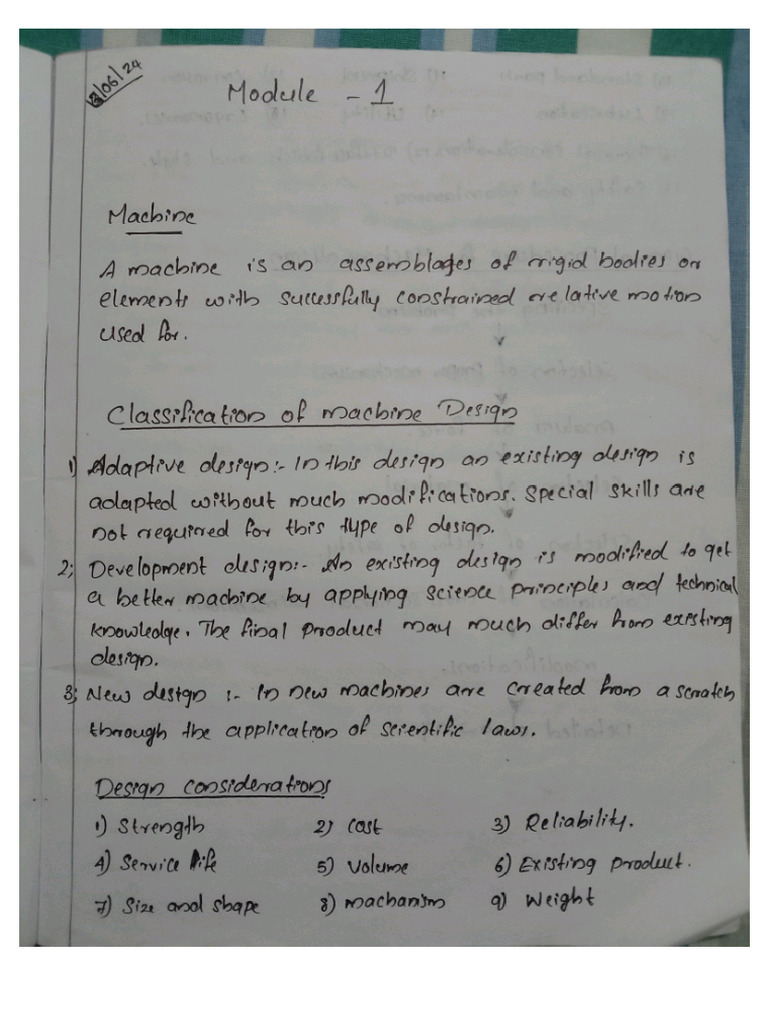 /06/24
Module - 1
Machine
A machine is an assemblages of rigid bodies or
elements with successfully constrained relative motion
used for.
Classification of machine Design
1) Adaptive design:- In this design an existing design is
adapted without much modifications. Special skills are
not required for this type of design.
2; Development design:- An existing design is modified to get
a better machine by applying science principles and technical
knowledge. The final product may much differ from existing
design.
3; New design :- In new machines are created from a scratch
through the application of scientific laws.
Design considerations
1) Strength 2) Cost 3) Reliability.
4) Service life 5) Volume 6) Existing product.
7) Size and shape 8) machanism 9) Weight